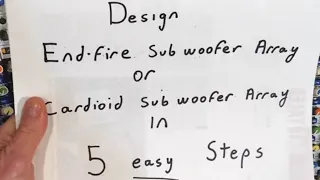 Design
End-fire Subwoofer Array
or
Cardioid Subwoofer Array
In
5 easy Steps